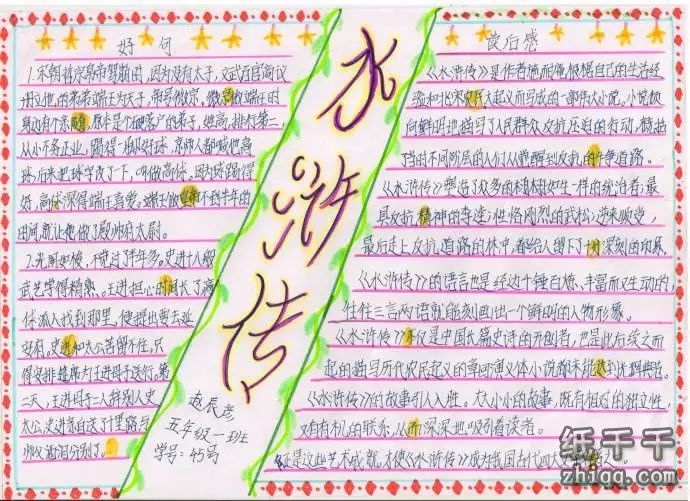 好句
1.宋朝哲宗皇帝驾崩, 因为没有太子, 文武百官商议
册立他的弟弟端王为天子, 帝号徽宗, 徽宗做端王时
身边有个亲随, 原本是个破落户的弟子, 姓高, 排行第二,
从小不务正业, 踢得一脚好球, 京师人都喊他高
球, 后来把球字改了一下, 叫做高俅。因为球踢得
好, 高俅深得端王喜爱, 端王做皇帝不到半年的
时间, 就让他做了殿帅府太尉。
2.光阴如梭, 不觉过了半年多。史进十八般
武艺学得精熟。王进担心时间长了高
俅派人找到那里, 便提出要去延
安府, 史进和太公苦留不住, 只
得安排筵席为王进母子送行, 第
二天, 王进母子二人辞别人史
太公, 史进亲自送了十里路与
师父洒泪分别了。
水浒传
赵辰彦
五年级一班
学号:45号
读后感
《水浒传》是作者施耐庵根据自己的生活经
验和北宋农民大起义而写成的一部伟大小说。小说极
向鲜明地描写了人民群众反抗压迫的行动, 概括
了当时不同阶层的人们从觉醒到反抗的斗争道路。
《水浒传》塑造了众多的栩栩如生一样的统治者, 最
具反抗精神的李逵, 性格刚烈的武松, 逆来顺受,
最后走上反抗道路的林冲, 都给人留下了十分深刻的印象。
《水浒传》的语言也是经过千锤百炼、丰富而又生动的
往往三言两语就能刻画出一个鲜明的人物形象。
《水浒传》不仅是中国长篇史诗的开创者, 也是此后续之而
起的描写历代农民起义的章回演义体小说都未能达到水浒典范。
《水浒传》的故事引人入胜。大大小小的故事, 既有相对的独立性,
又有有机的联系, 从而深深地吸引着读者。
还是这些艺术成就, 才使《水浒传》成为我国古代四大
纸千千
zhiqq.com